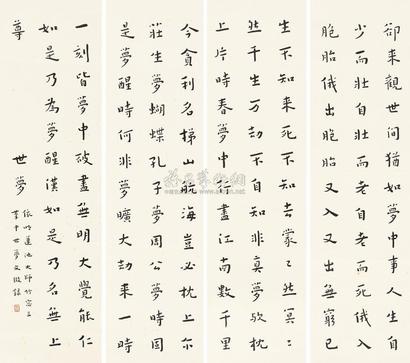 卻来觀世间犹如夢中事人生自
少而壯自壯而老自老而死俄入
胞胎俄出胞胎又入又出無窮已
生不知来死不知去蒙〻然冥〻
然千生万劫不自知非真夢欤枕
上片時春夢中行盡江南數千里
今貪利名梯山航海豈必枕上尔
莊生夢蝴蝶孔子夢周公夢時固
是夢醒時何非夢曠大劫来一時
一刻皆夢中破盡無明大覺能仁
如是乃為夢醒漢如是乃名無上
尊 世夢
依明蓮池大師竹窗三
筆中世夢文撮錄